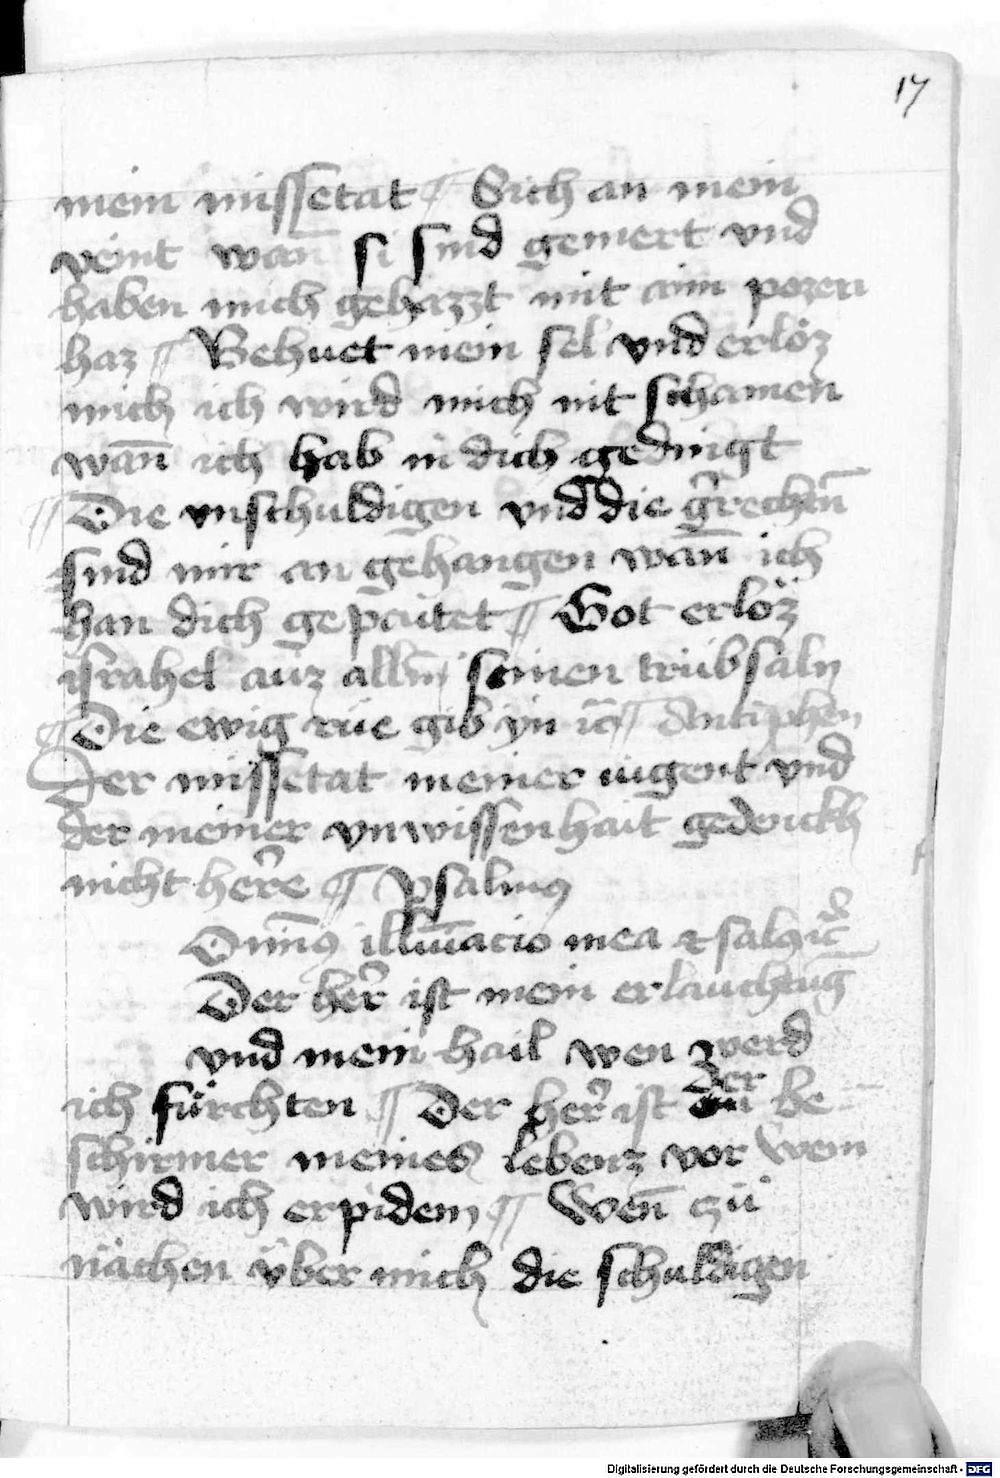 17
mein missetat ¶ Sich an mein
veint wan̄ si sind gemert vnd
haben mich gehazzt mit aim pozen
haz ¶ Behuet mein sel vnd erlöz
mich ich wird mich nit schamen
wan̄ ich hab in dich gedingt
¶ Die vnschuldigen vnd die g̃rechtn̄
sind mir an gehangen wan̄ ich
han dich gepaitet ¶ Got erlöz
israhel auz alln̄ seinen trübsaln
¶ Die ewig rüe gib yn ic̄ ¶ Antiphen
Der missetat meiner iugent vnd
der meiner vnwissenhait gedenckh
nicht her̃e ¶ Psalmus
Domin̄9 illūīacio mea & sal9 ic̄
Der her̃ ist mein erlauchtūg
vnd mein hail wen werd
der
ich fürchten ¶ Der her̃ ist be
schirmer meines lebenz vor wem
wird ich erpidem ¶ Wen̄ zů
nächen über mich die schuldigen
Digitalisierung gefördert durch die Deutsche Forschungsgemeinschaft - DFG